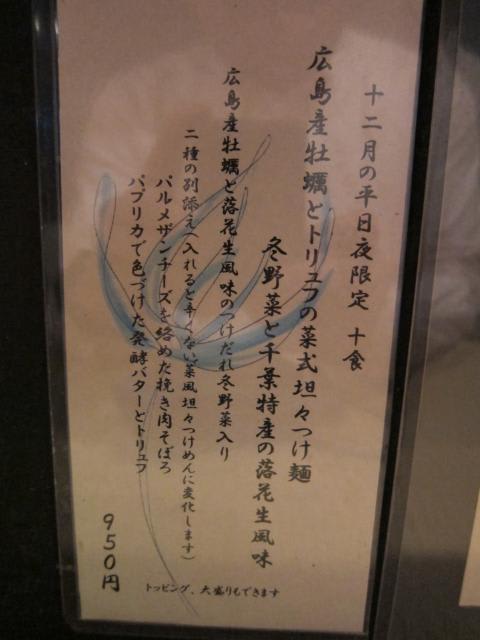 十二月の平日夜限定 十食
広島産牡蠣とトリュフの菜式坦々つけ麺
冬野菜と千葉特産の落花生風味
広島産牡蠣と落花生風味のつけだれ冬野菜入り
二種の別添え(入れると辛くない菜風坦々つけめんに変化します)
パルメザンチーズを絡めた挽き肉そぼろ
パプリカで色づけた発酵バターとトリュフ
950円
トッピング、大盛りもできます